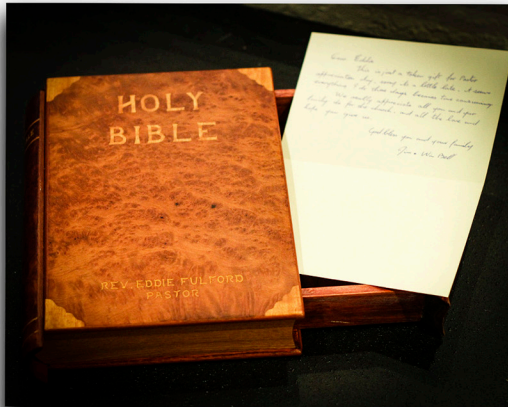 HOLY
BIBLE
REV. EDDIE FULFORD
PASTOR
Dear Eddie
This is just a token gift for Pastor
appreciation day, sorry its a little late, it seems
everything I do these days becomes time consuming
We really appreciate all you and your
family do for the church, and all the love and
help you give us.
God bless you and your family